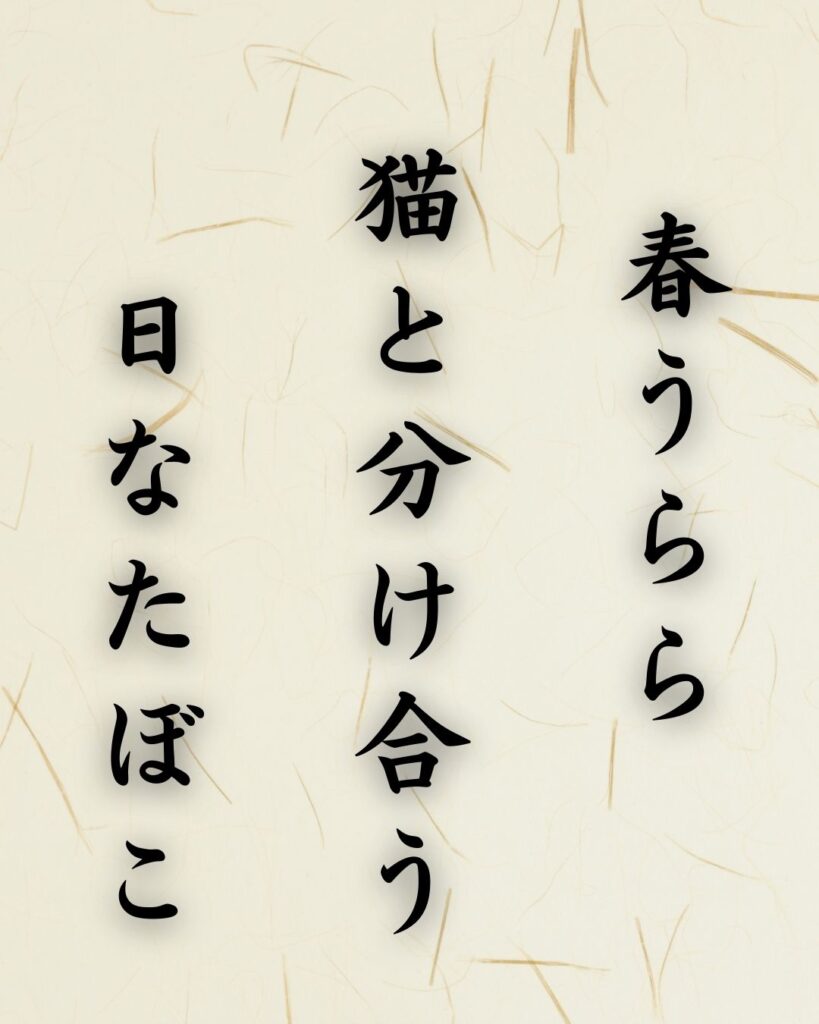 春うらら
猫と分け合う
日なたぼこ